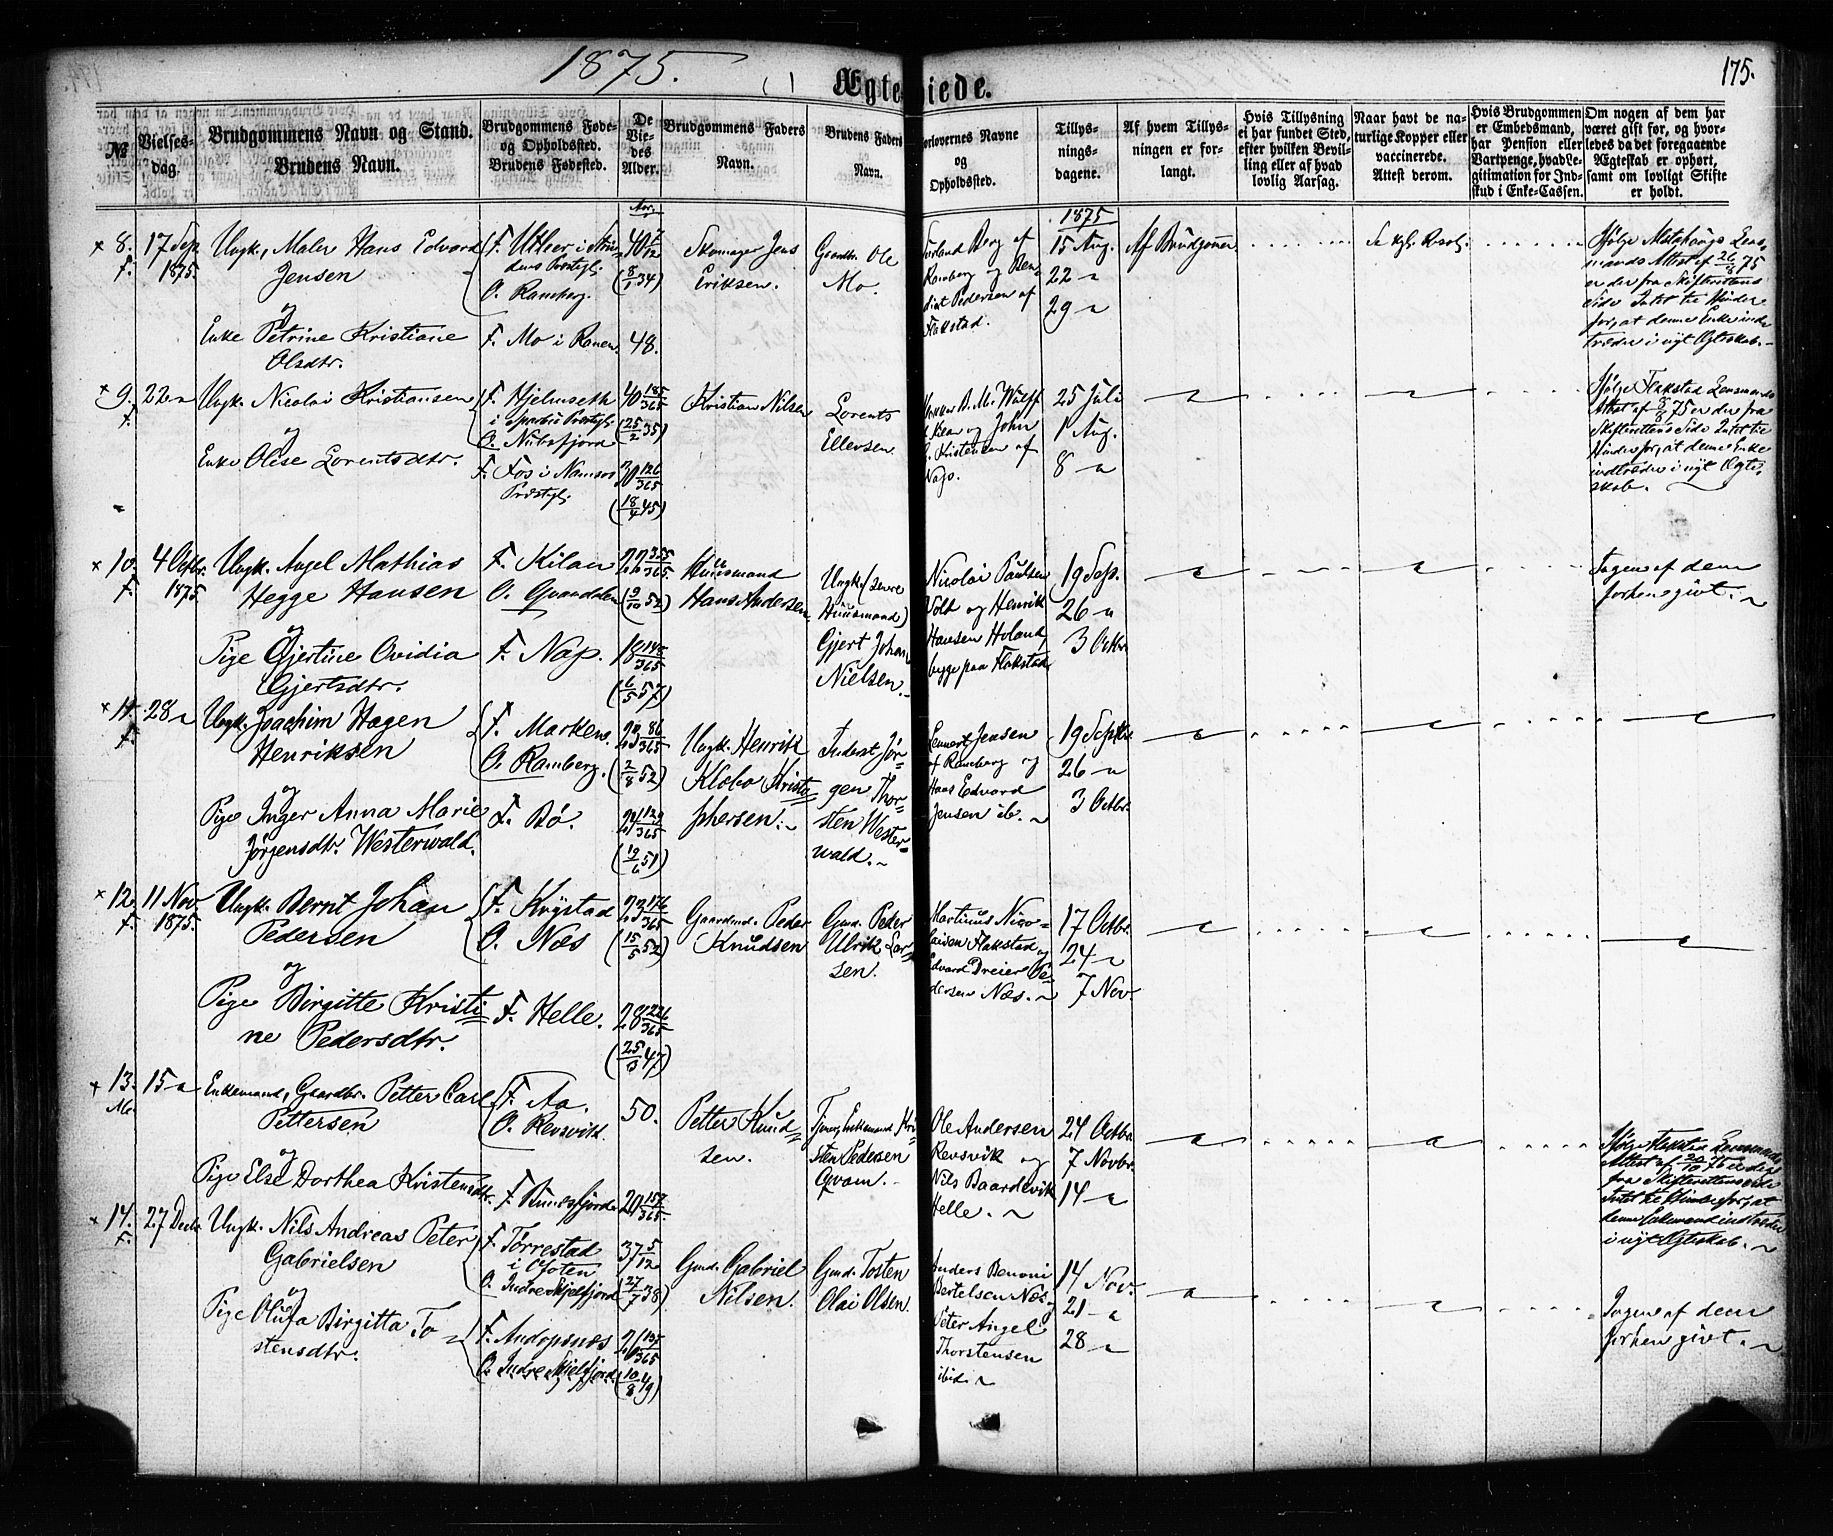 1875.
Ægteviede.
175.
№
Vielses-
dag.
Brudgommens Navn og Stand.
Brudens Navn.
Brudgommens Føde-
og Opholdssted.
Brudens Fødested.
De
Vie-
des
Alder.
Brudgommens Faders
Navn.
Brudens Faders
Navn.
Forlovernes Navne
og
Opholdssted.
Tillys-
nings-
dagene.
Af hvem Tillys-
ningen er for-
langt.
Hvis Tillysning
ei har fundet Sted,
efter hvilken Bevil-
ling eller af hvad
lovlig Aarsag.
Naar havt de na-
turlige Kopper eller
vaccinerede.
Attest derom.
Hvis Brudgommen
er Embedsmand,
har Pension eller
Vartpenge, hvad Le-
gitimation for Ind-
skud i Enke-Cassen.
Om nogen af dem har
været gift før, og hvor-
ledes da det foregaaende
Ægteskab er ophørt,
samt om lovligt Skifte
er holdt.
Aar.
1875
× 8. 17 Sep.
F. 1875.
Ungk., Maler Hans Edvard
Jensen
og
Enke Petrine Kristiane
Olsdtr.
O. Ramberg.
F. Mo i Ranen.
40 7/12
(8/1 34)
48.
Skomager Jens
Eriksen.
Gaardbr. Ole
Mo.
Berg af
Ramberg og Ben-
dict Pedersen af
Flakstad.
15 Aug.
22 "
29 "
Af Brudgommen.
Se kgl. Resol.
Ifølge Lens-
mands Attest af 26/8 75
er der fra Skifterettens
Side Intet til Hinder
for, at denne Enke ind-
træder i nyt Ægteskab.
× 9. 22 "
F.
Ungk. Nicolai Kristiansen
og
Enke Olise Lorentsdtr.
F. Hjelmseth
i Sparbu Præstgl.
O. Nusfjord
F. Fos i Namsos
Præstgl.
40 185/365
(25/2 35)
30 126/365
(18/4 45)
Kristian Nilsen
Lorents
Ellevsen
B. M. Wulff
og John
Kristensen af
Nap.
25 Juli
1 Aug.
8 "
Ifølge Flakstad Lensmands
Attest af 8/8 75 er der fra
Skifterettens Side Intet til
Hinder for, at denne Enke
indtræder i nyt Ægte-
skab.
× 10. 4 Octbr.
F. 1875.
Ungk. Angel Mathias
Hegge Hansen
og
Pige Gjertine Ovidia
Gjertsdtr.
F. Kilan
O. Qvandalen
F. Nap.
22 355/365
(9/10 52)
18 148/365
(6/5 57)
Huusmand
Hans Andersen
Ungk. (senre
Huusmand)
Gjert Johan
Nielsen.
Nicolai Paulsen
Volt og Henrik
Hansen Holand,
begge paa Flakstad
19 Sep.
26 "
3 Octbr.
Ingen af dem
forhen givt.
× 11. 28 "
F.
Ungk. Joachim Hagen
Henriksen
og
Pige Inger Anna Marie
Jørgensdtr. Westerwald.
F. Marken.
O. Ramberg.
F. Bø.
23 86/365
(2/8 52)
(19/6 51)
Ungk. Henrik
Klobo Kristo-
phersen.
Inderst Jør-
gen Thor-
sten Wester-
wald.
Lennert Jensen
af Ramberg og
Hans Edvard
Jensen ib.
19 Septbr.
26 "
3 Octbr.
× 12. 11 Nov.
F. 1875.
Ungk. Bernt Johan
Pedersen
og
Pige Birgitte Kristi-
ne Pedersdtr.
F. Krystad
O. Næs
F. Helle.
23 176/365
(15/5 52)
28 226/365
Gaardmd. Peder
Knudsen
Gmd. Peder
Ulrik Lar-
sen.
Martinus Nico-
laisen Flakstad og
Edvard Dreier Pe-
dersen Næs.
17 Octbr.
24 "
7 Nov.
× 13. 15 "
Enkemand, Gaardbr. Petter Carl
Pettersen
og
Pige Else Dorthea Kristensdtr.
F. Aa.
O. Revsvik.
F. Sundsfjord
50.
20 157/365.
Petter Knud-
sen.
Enkemand Kri-
sten Pedersen
Qvam.
Ole Andersen
Revsvik og
Nils Baardsvik
Helle.
24 Octbr.
7 Novbr.
14 "
Ifølge Flakstad Lensmands
Attest af 20/10 75 er der
fra Skifterettens Side
Intet til Hinder for, at
denne Enkemand indtræder
i nyt Ægteskab.
× 14. 27 Decbr.
F.
Ungk. Nils Andreas Peter
Gabrielsen
og
Pige Olufa Birgitta To-
stensdtr.
F. Tørrestad
i Ofoten
O. Indre Skjelfjord
F. Andopsnæs
O. Indre Skjelfjord
37 5/12
(27/7 38)
26 137/365
(10/8 49)
Gmd. Gabriel
Nilsen.
Gmd. Tosten
Olai Olsen.
Anders Benoni
Bertelsen Næs og
Peter Angel
Thorstensen
ibid.
14 Nov.
21 "
28 "
Ingen af dem
forhen givt.